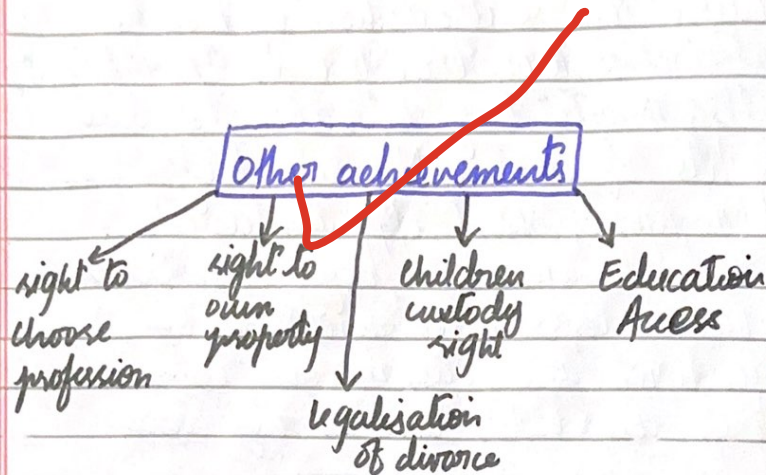 Other achievements
right to
choose
profession
right to
own
property
legalisation
of divorce
children
custody
right
Education
Acess